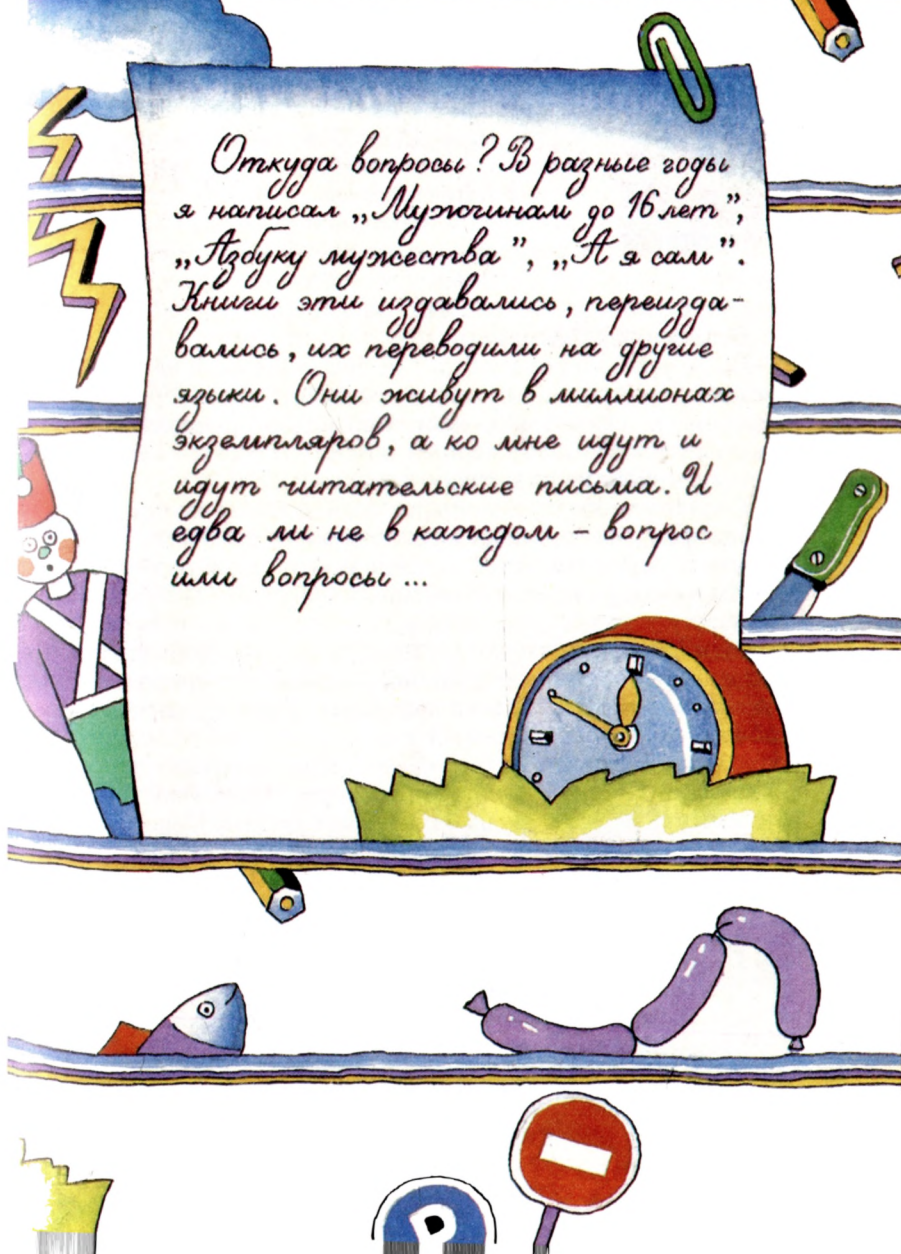 Откуда вопросы? В разные годы
я написал „Мужчинам до 16 лет”,
„Азбуку мужества”, „А я сам”.
Книги эти издавались, переизда-
вались, их переводили на другие
языки. Они живут в миллионах
экземпляров, а ко мне идут и
идут читательские письма. И
едва ли не в каждом – вопрос
или вопросы...
P